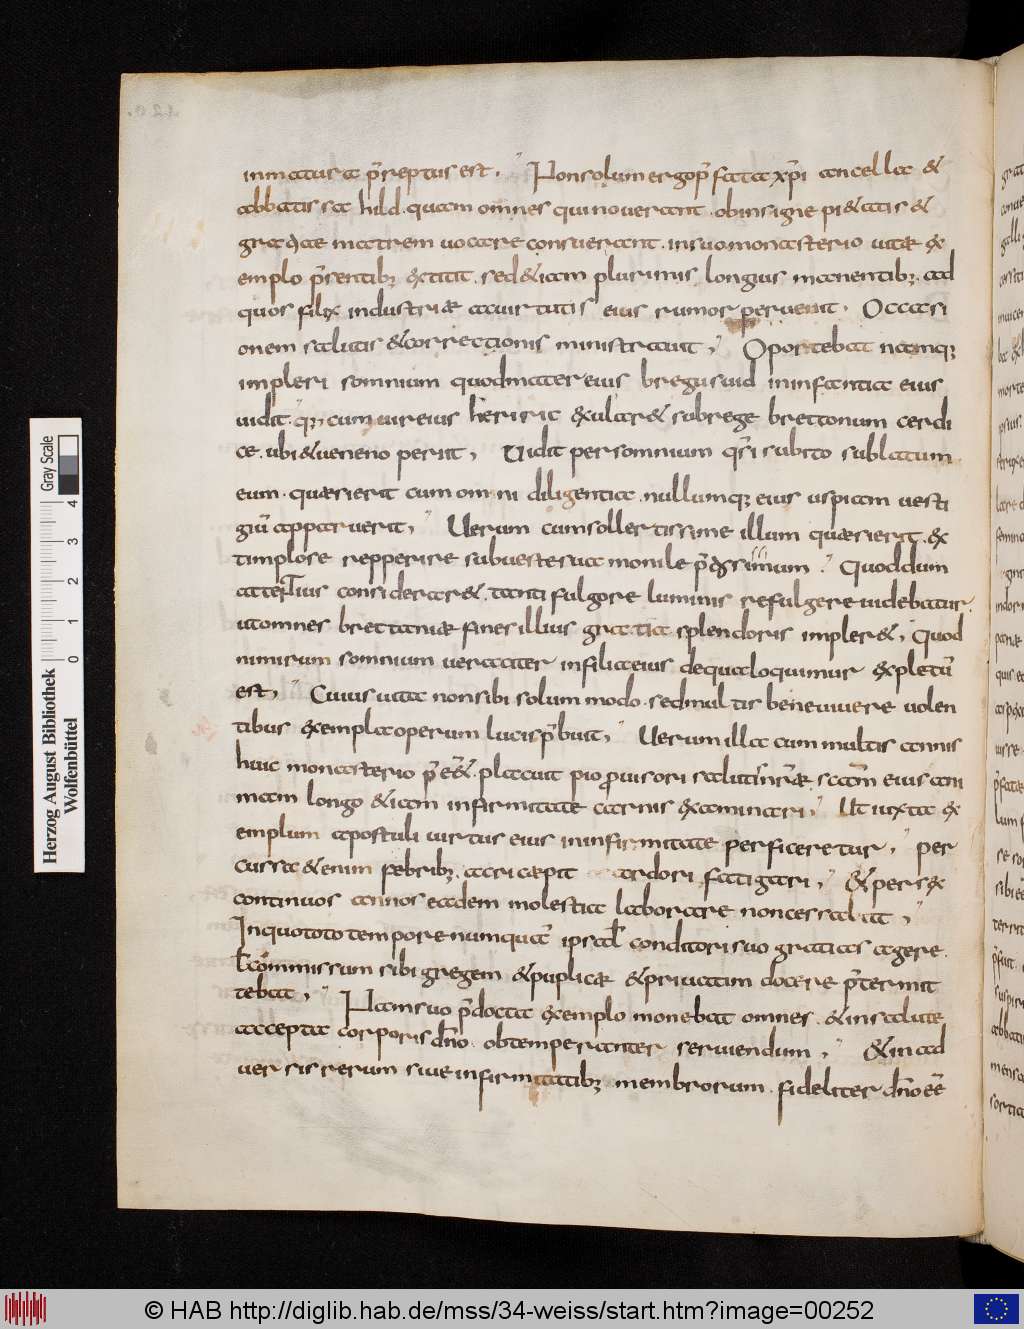 inmatura p̄reptus est. Non solum ergo p̄fata xp̄i ancella &
abbatissa hild. quam omnes qui noverant. ob insigne pi&atis &
gr̄ae matrem vocare consuerant. in suo monasterio vitae ex
emplo p̄sentib; extitit. sed &iam plurimis longius manentib;. ad
quos felix industriae ac virtutis eius rumor pervenit. Occasi
onem salutis & correctionis ministravit, Oportebat namq;
impleri somnium quod mater eius bregusuid in infantia eius
vidit. q; cum vir eius heriric exular& sub rege brettonum cerdi
ce. ubi & veneno periit, Vidit per somnium q̄si subito sublatum
eum. quaesierit cum omni diligentia. nullumq; eius uspiam vesti
giū apparuerit, Verum cum sollertissime illum quaesierit. ex
timplo se repperire sub veste sua monile p̄tiosissimum. Quod dum
attentius considerar&. tanti fulgore luminis refulgere videbatur.
ut omnes brettaniae fines illius gratia splendoris impler&, Quod
nimirum somnium veraciter in filia eius de qua loquimur expletū
est, Cuius vita non sibi solummodo. sed multis bene vivere volen
tibus exempla operum lucis p̄buit, Verum illa cum multis annis
huic monasterio p̄e&. placuit pio provisori salutis nr̄ae scām eius ani
mam longo &iam infirmitate carnis examinari, Ut iuxta ex
emplum apostuli virtus eius in infirmitate perficeretur, Per
cussa &enim febrib;. acri caepit ardori fatigari, & per sex
continuos annos eadem molestia laborare non cessabat,
In quo toto tempore numquā ipsa ł conditori suo gratias agere.
ł commissum sibi gregem & puplicae & privatim docere p̄termit
tebat, Nam suo p̄docta exemplo monebat omnes. & in salute
accepta corporis dn̄o. obtemperanter serviendum, & in ad
versis rerum sive infirmitatib; membrorum. fideliter dn̄o eē
Herzog August Bibliothek
Wolfenbüttel
0 1 2 3 4
Gray Scale
© HAB http://diglib.hab.de/mss/34-weiss/start.htm?image=00252